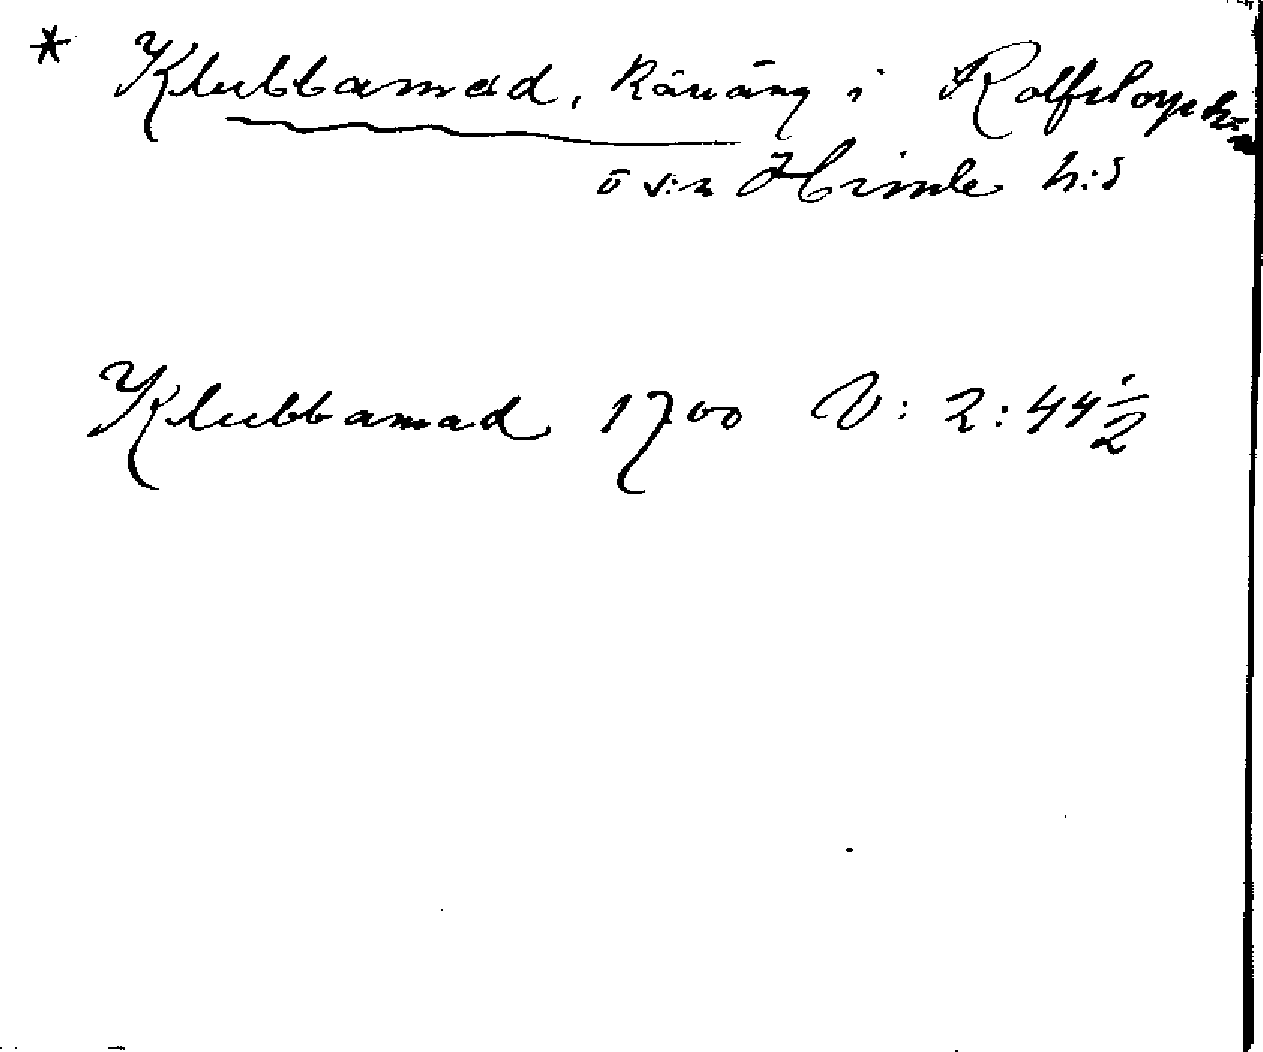 * Klubbamad, kåräng i Rolfstorps
ö v:n Himle h:d
Klubbamad 1700 V: 2:44 1/2